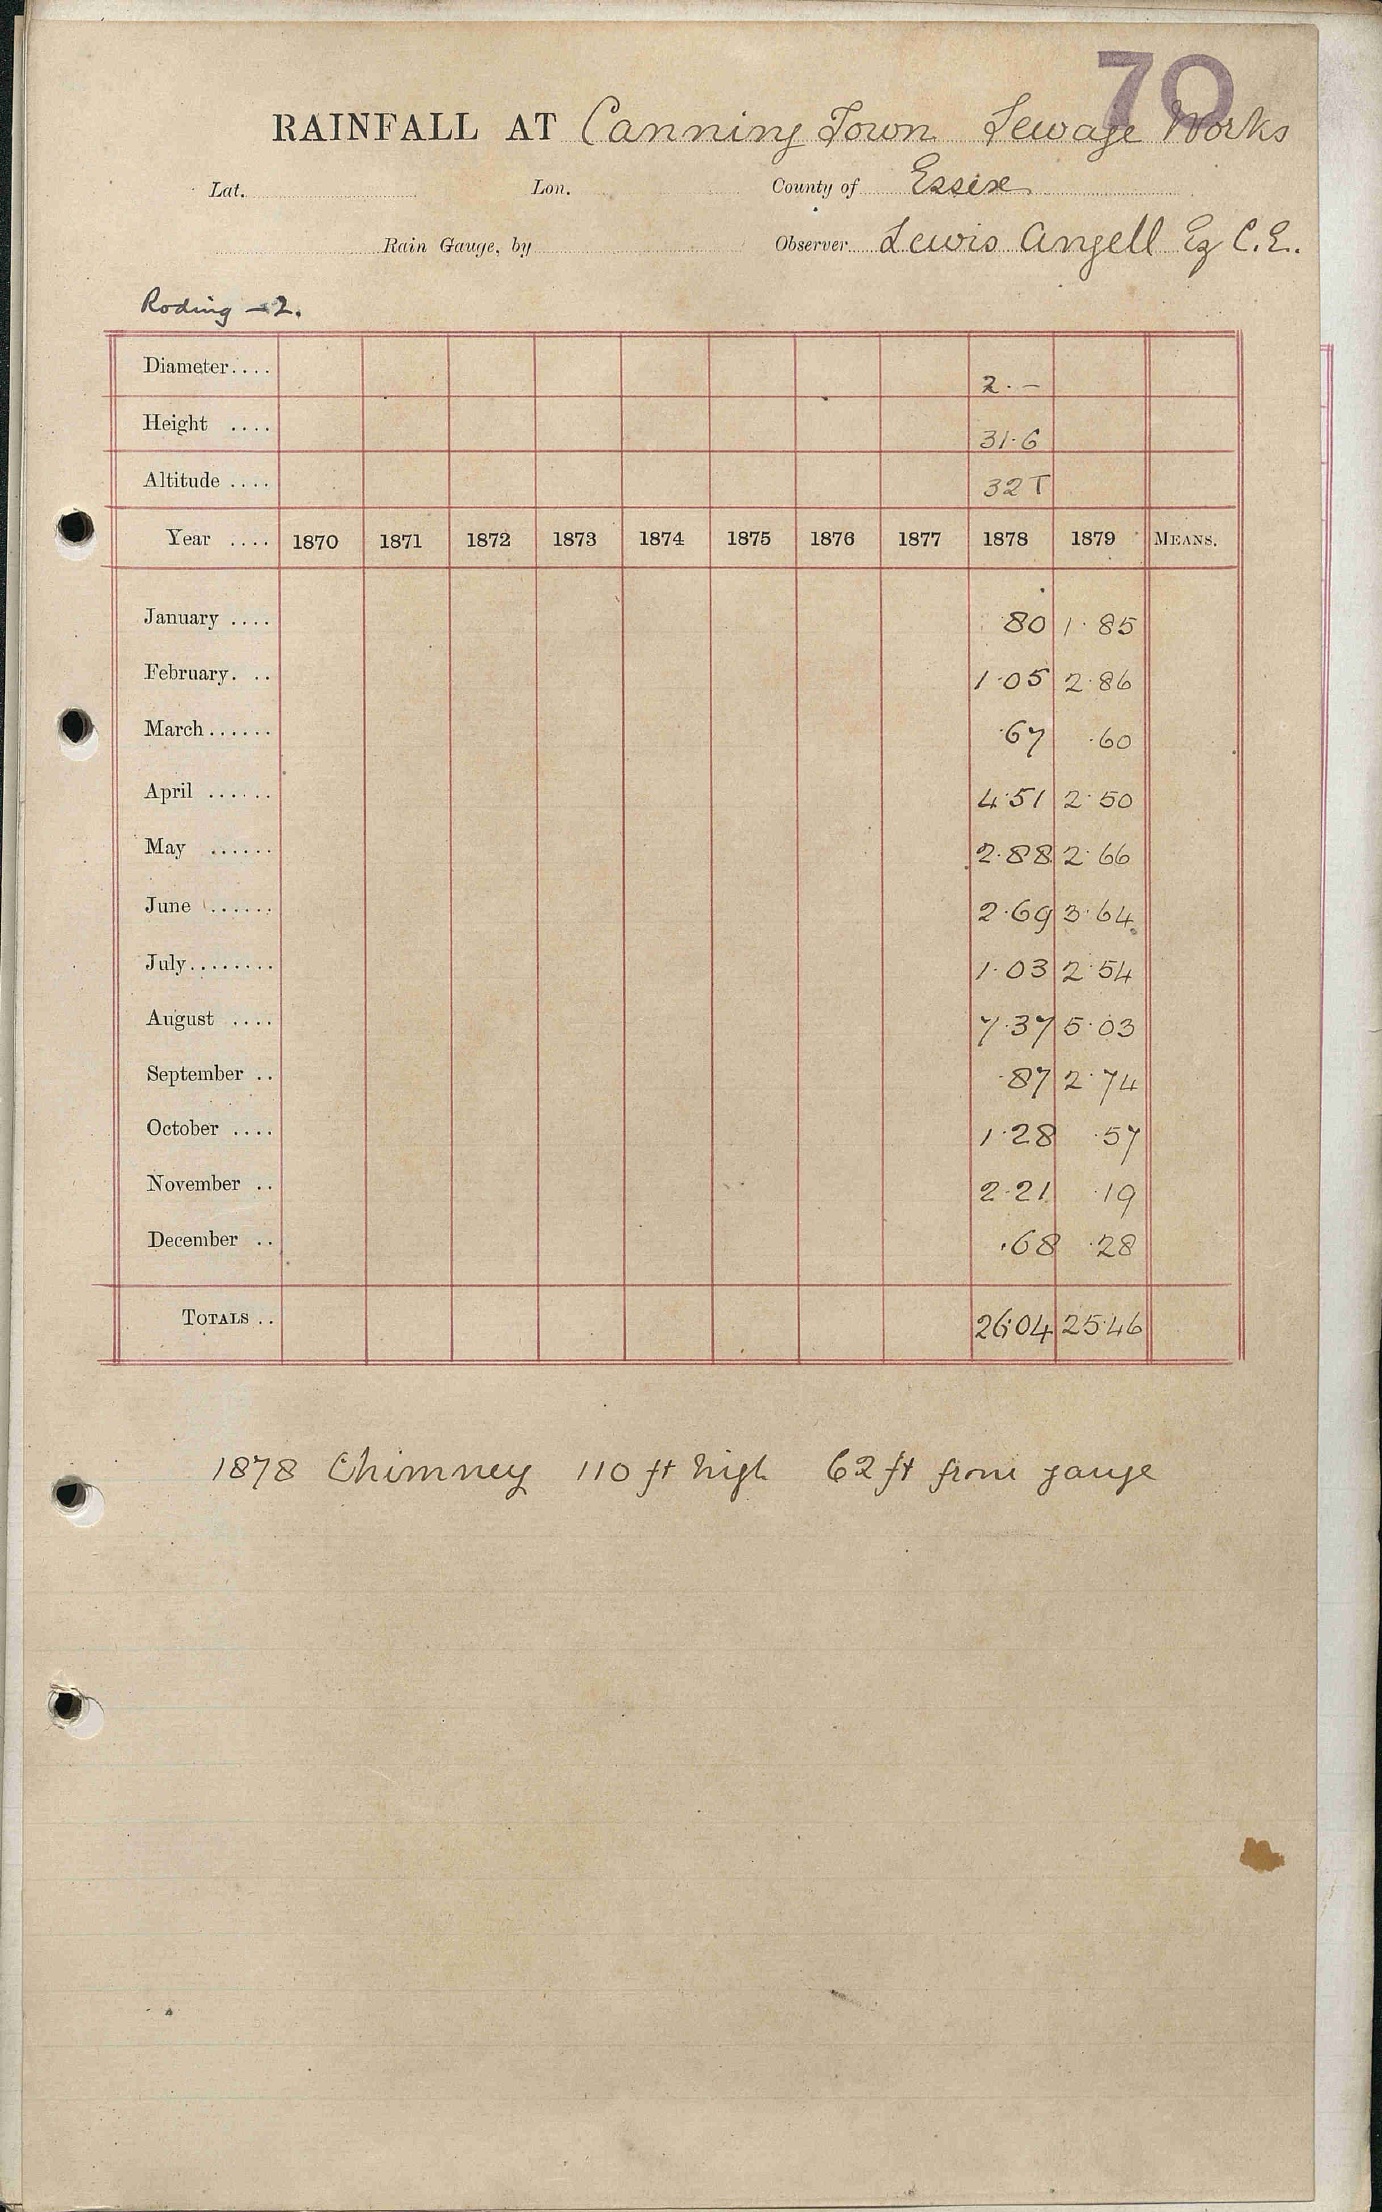 70
RAINFALL AT Canning Town Sewage Works
Lat. Lon. County of Essex
Rain Gauge, by Observer Lewis Angell Eq C.E.
Roding - 2.
Diameter.... 2. -
Height .... 31.6
Altitude .... 32 T
Year .... 1870 1871 1872 1873 1874 1875 1876 1877 1878 1879 MEANS.
January .... .80 1.85
February. .. 1.05 2.86
March...... .67 .60
April ...... 4.51 2.50
May ...... 2.88 2.66
June ...... 2.69 3.64
July........ 1.03 2.54
August .... 7.37 5.03
September .. .87 2.74
October .... 1.28 .57
November .. 2.21 .19
December .. .68 .28
TOTALS .. 26.04 25.46
1878 Chimney 110 ft high 62 ft from gauge